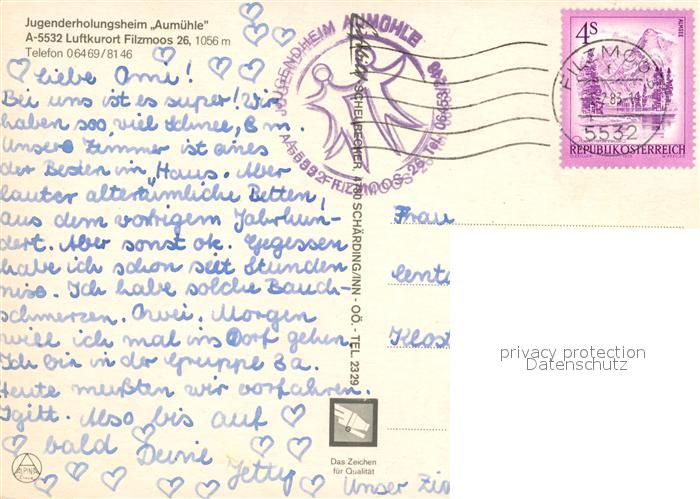 Jugenderholungsheim „Aumühle"
A-5532 Luftkurort Filzmoos 26, 1056 m
Telefon 06469/8146
Liebe Omi!
Bei uns ist es super! Wir
haben soo, viel Schnee, 8 m.
Unser Zimmer ist eines
der Besten im „Haus. Aber
lauter altertümliche Betten!
aus dem vorhigem Jahrhun-
dert. Aber sonst ok. Gegessen
habe ich schon seit Stunden
nix. Ich habe solche Bauch-
schmerzen. Morgen
will ich mal ins Dorf gehen.
Ich bin in der Gruppe 3a.
Heute mußten wir vorfahren.
Igitt. Also bis auf
bald Deine
Jetty
Unser Zi
JUGENDHEIM AUMÜHLE
A-5532 FILZMOOS 26
SCHEURECKER, 4780 SCHÄRDING/INN - OÖ. - TEL. 2329
ALPINA
Das Zeichen
für Qualität
4S
ALMSEE
REPUBLIK ÖSTERREICH
FILZMOOS
5532
Frau
Klost
privacy protection
Datenschutz